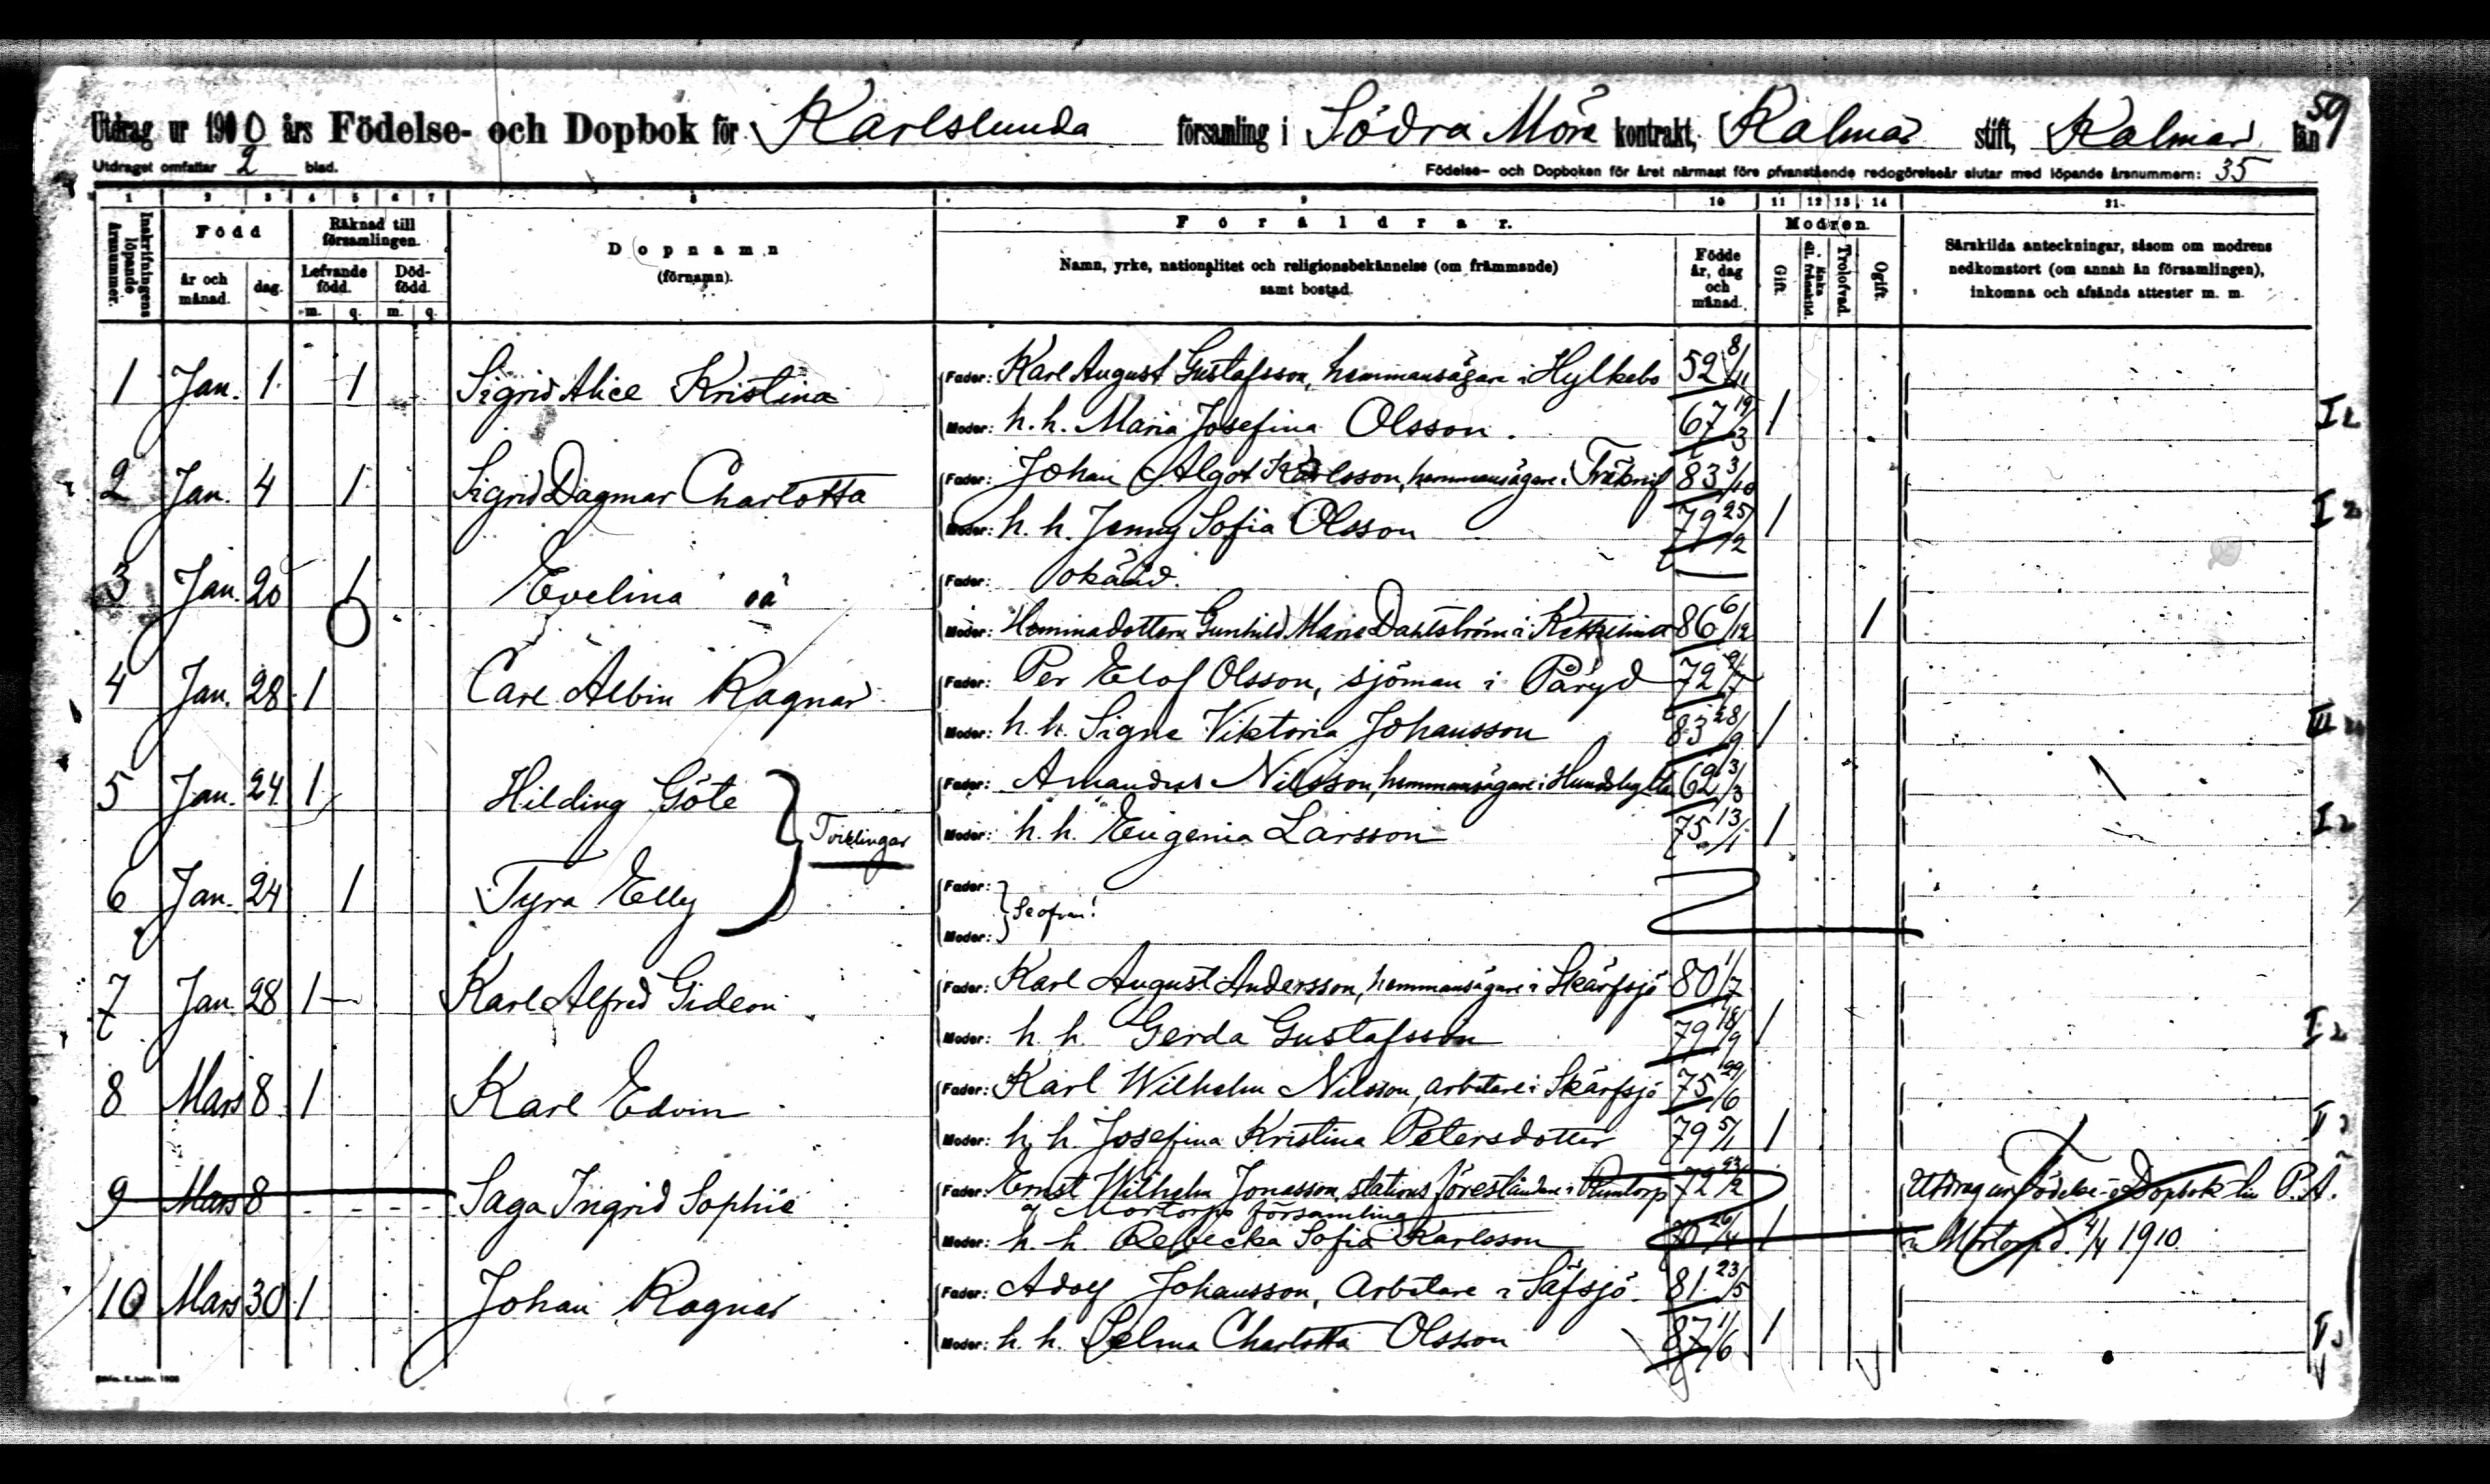 59
Utdrag ur 1910 års Födelse- och Dopbok för Karlslunda församling i Södra Möre kontrakt, Kalmar stift, Kalmar län
Utdraget omfattar 2 blad. Födelse- och Dopboken för året närmast före ofvanstående redogörelseår slutar med löpande årsnummern: 35
1 2 3 4 5 6 7 8 9 10 11 12 13 14 21.
Inskrifningens löpande årsnummer.
Född
år och månad. dag.
Räknad till församlingen.
Lefvande född. Död-född.
m. q. m. q.
Dopnamn
(förnamn).
Föräldrar.
Namn, yrke, nationalitet och religionsbekännelse (om främmande)
samt bostad.
Födde år, dag och månad.
Modren.
Gift. Trolofvad. Ogift.
Särskilda anteckningar, såsom om modrens
nedkomstort (om annan än församlingen),
inkomna och afsända attester m. m.
1 Jan. 1. 1 Sigrid Alice Kristina Fader: Karl August Gustafsson, hemmansägare i Hylkebo 52 8/11
Moder: h. h. Maria Josefina Olsson. 67 19/3 1 I 2
2 Jan. 4 1 Sigrid Dagmar Charlotta Fader: Johan Algot Karlsson, hemmansägare i 83 3/10
Moder: h. h. Jenny Sofia Olsson 79 25/2 1 I 2
3 Jan. 20 1 Evelina oä Fader: okänd.
Moder: Gunhild Maria Dahlström i 86 6/12 1
4 Jan. 28 1 Carl Albin Ragnar Fader: Per Elof Olsson, sjöman i Påryd 72
Moder: h. h. Signe Viktoria Johansson 83 28/9 1
5 Jan. 24 1 Hilding Göte Fader: Amandus Nilsson, hemmansägare i Hundshylta 62
Tvillingar
Moder: h. h. Eugenia Larsson 75 13/1 1 I 2
6 Jan. 24 1 Tyra Elly Fader:
Se ofvan!
Moder:
7 Jan. 28 1 Karl Alfred Gideon Fader: Karl August Andersson, hemmansägare i Skärfsjö 80 1/7
Moder: h. h. Gerda Gustafsson 79 18/9 1 I 2
8 Mars 8 1 Karl Edvin Fader: Karl Wilhelm Nilsson, arbetare i Skärfsjö 75 29/6
Moder: h. h. Josefina Kristina Petersdotter 79 5/1 1
9 Mars 8 Saga Ingrid Sophie Fader: Ernst Wilhelm Jonasson, stationsföreståndare i 72 23/2 Utdrag ur Födelse- o Dopbok till P.Ä.
af Mortorps församling
Moder: h. h. Rebecka Sofia Karlsson 70 26/4 1 i Mortorp d. 4/4 1910
10 Mars 30 1 Johan Ragnar Fader: Adolf Johansson, Arbetare i Säfsjö. 81. 23/5
Moder: h. h. Selma Charlotta Olsson 87 1/6 1